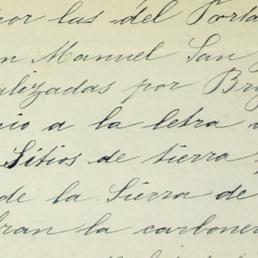 por las del Porta
n Manuel San
alizadas por Br
nio a la letra
Sitios de tierra
de la Sierra de
fran la carbone